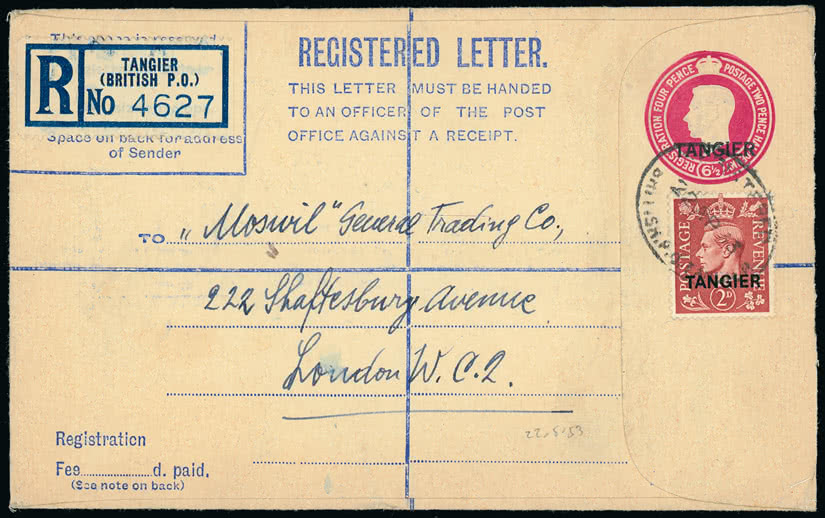 REGISTERED LETTER.
THIS LETTER MUST BE HANDED
TO AN OFFICER OF THE POST
OFFICE AGAINST A RECEIPT.
R
TANGIER
(BRITISH P.O.)
No 4627
Space on back for address
of Sender
REGISTRATION FOUR PENCE
POSTAGE TWO PENCE HALFPENNY
6½D
TANGIER
POSTAGE
REVENUE
TANGIER
2D
TO „Moswil" General Trading Co.,
222 Shaftesbury Avenue
London W.C.2.
22.5.53
Registration
Fee d. paid.
(See note on back)